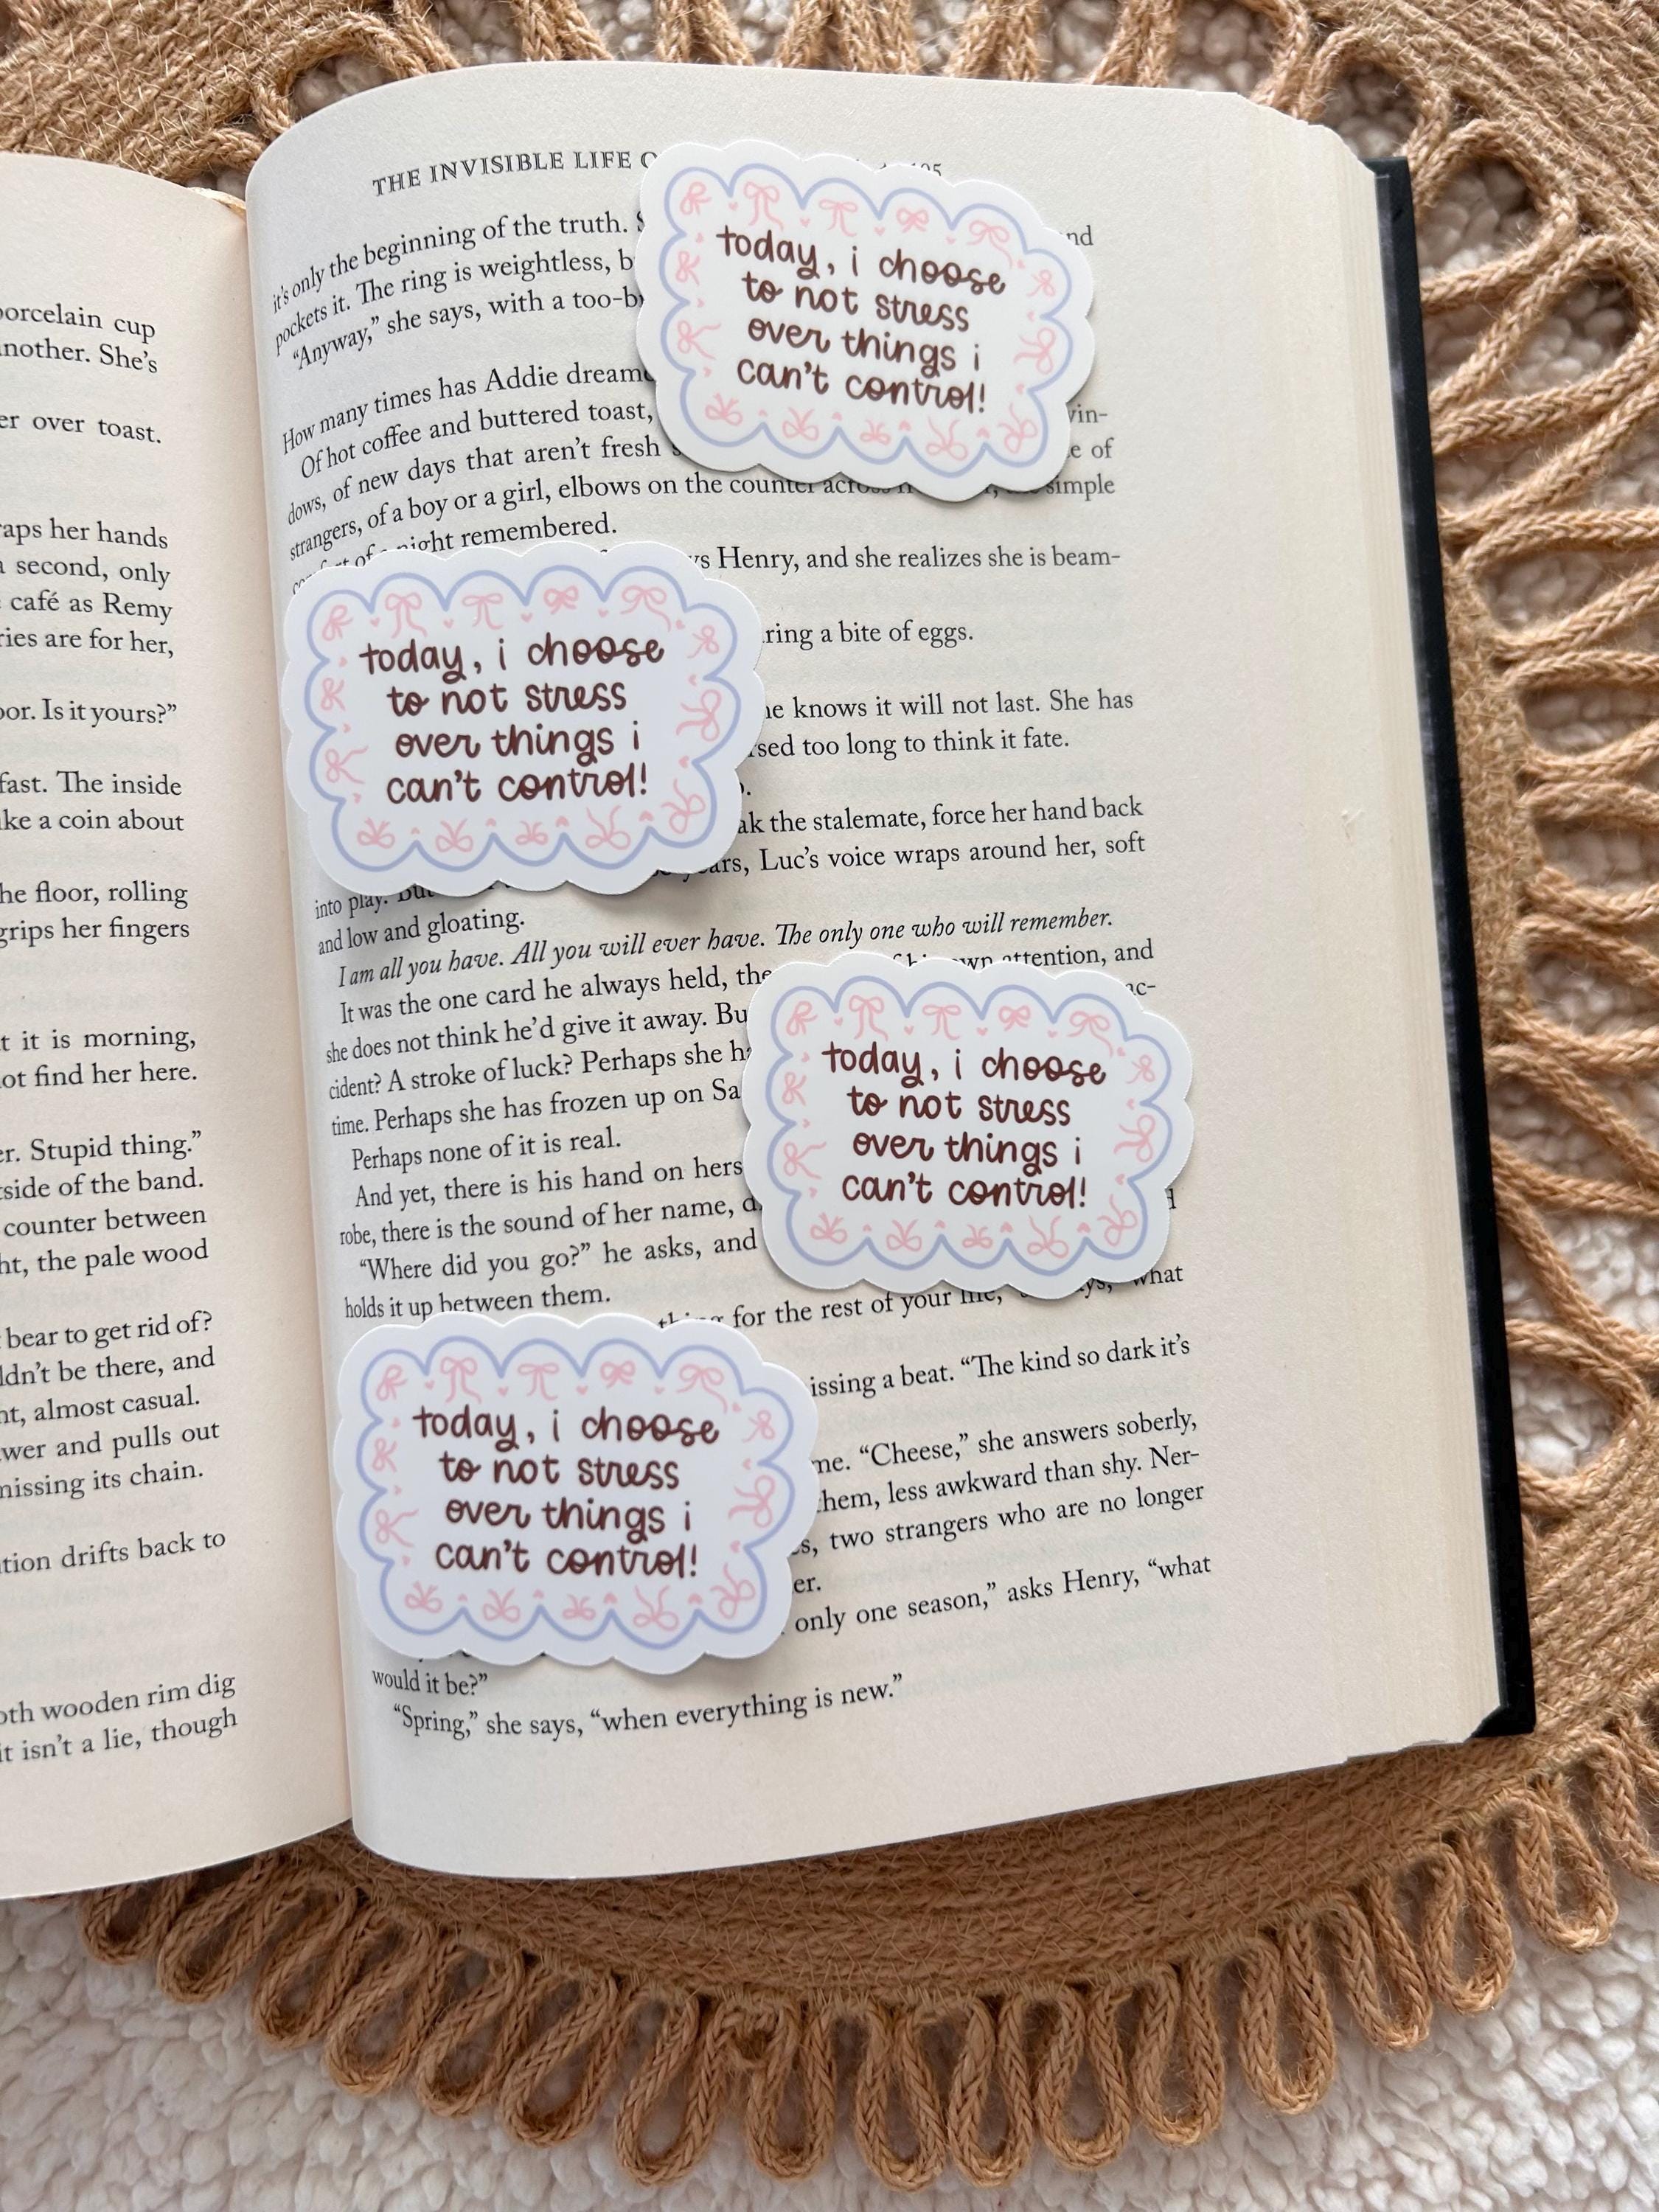 porcelain cup
another. She's
er over toast.
raps her hands
a second, only
café as Remy
ries are for her,
oor. Is it yours?”
fast. The inside
ike a coin about
he floor, rolling
grips her fingers
t it is morning,
ot find her here.
er. Stupid thing.”
side of the band.
counter between
ht, the pale wood
bear to get rid of?
ldn’t be there, and
nt, almost casual.
wer and pulls out
missing its chain.
tion drifts back to
oth wooden rim dig
it isn’t a lie, though
THE INVISIBLE LIFE
it’s only the beginning of the truth.
pockets it. The ring is weightless,
“Anyway,” she says, with a
How many times has Addie
Of hot coffee and buttered toast,
win-
dows, of new days that aren’t fresh
of
strangers, of a boy or a girl, elbows on the counter across
simple
of a night remembered.
Henry, and she realizes she is beam-
ring a bite of eggs.
he knows it will not last. She has
too long to think it fate.
the stalemate, force her hand back
into play.
Luc’s voice wraps around her, soft
and low and gloating.
I am all you have. All you will ever have. The only one who will remember.
It was the one card he always held, the
own attention, and
she does not think he’d give it away.
ac-
cident? A stroke of luck? Perhaps she
time. Perhaps she has frozen up on
Perhaps none of it is real.
And yet, there is his hand on hers
robe, there is the sound of her name,
“Where did you go?” he asks, and
holds it up between them.
for the rest of your
what
issing a beat. “The kind so dark it’s
me. “Cheese,” she answers soberly,
them, less awkward than shy. Ner-
two strangers who are no longer
er.
only one season,” asks Henry, “what
would it be?”
“Spring,” she says, “when everything is new.”
today, i choose
to not stress
over things i
can't control!
today, i choose
to not stress
over things i
can't control!
today, i choose
to not stress
over things i
can't control!
today, i choose
to not stress
over things i
can't control!